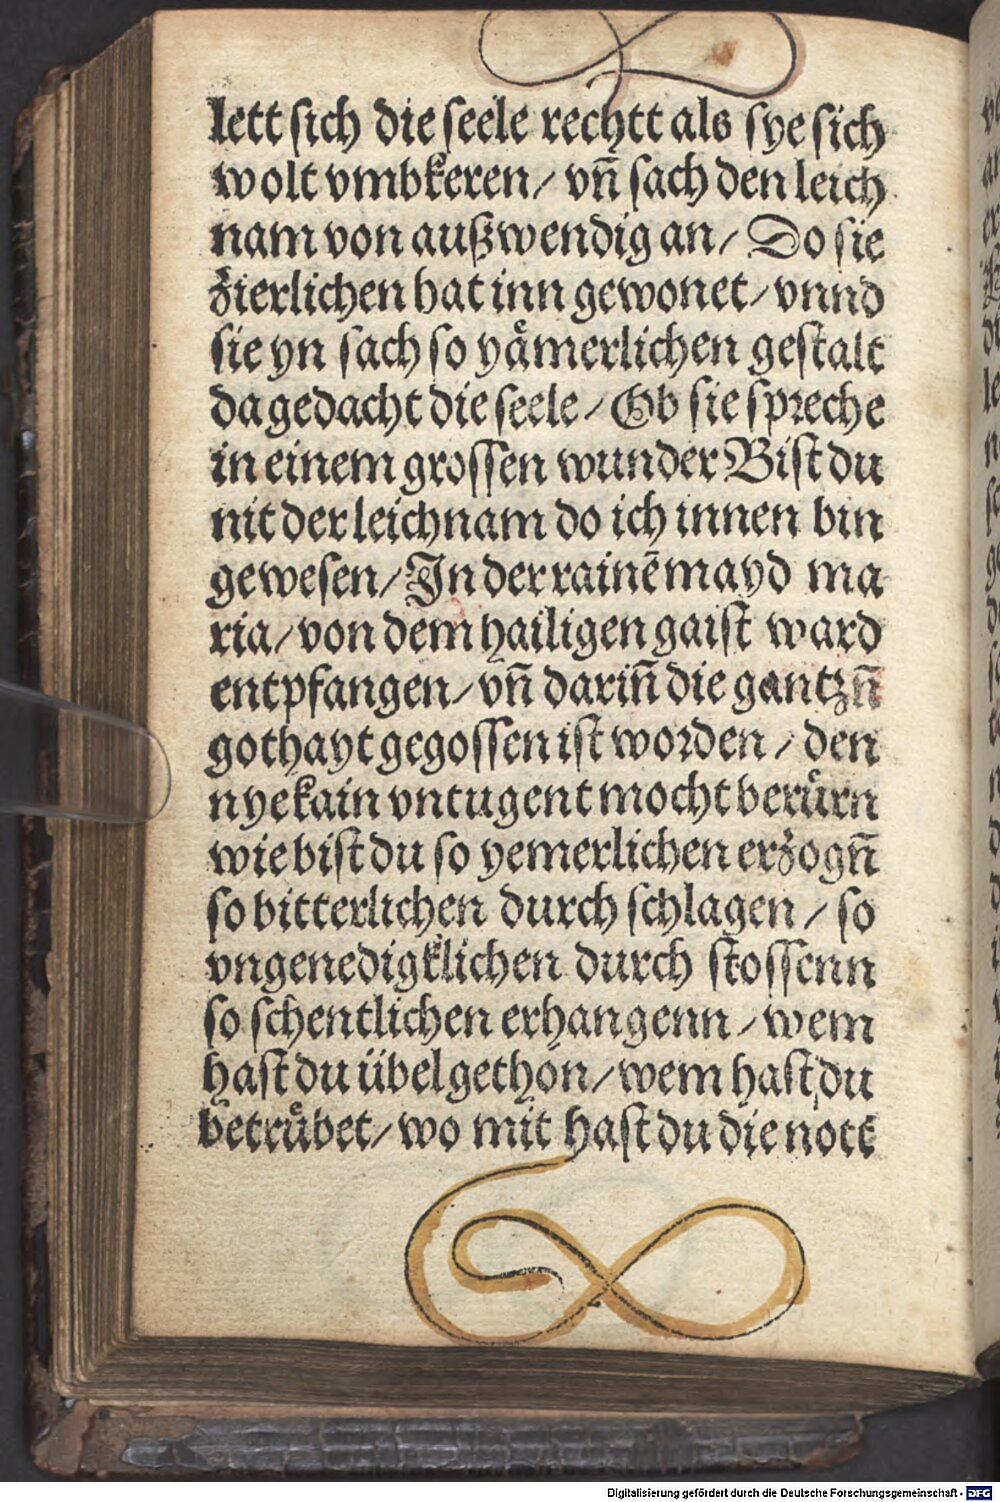 lett sich die seele rechtt als sye sich
wolt vmbkeren/ vñ sach den leich
nam von außwendig an/ Do sie
zierlichen hat inn gewonet/ vnnd
sie yn sach so yämerlichen gestalt
da gedacht die seele/ Ob sie spreche
in einem grossen wunder Bist du
nit der leichnam do ich innen bin
gewesen/ In der rainē mayd ma
ria/ von dem hailigen gaist ward
entpfangen/ vñ dariñ die gantzñ
gothayt gegossen ist worden/ den
nye kain vntugent mocht berürn
wie bist du so yemerlichen erzogñ
so bitterlichen durch schlagen/ so
vngenedigklichen durch stossenn
so schentlichen erhangenn/ wem
hast du übel gethon/ wem hast du
betrůbet/ wo mit hast du die nott
Digitalisierung gefördert durch die Deutsche Forschungsgemeinschaft - DFG